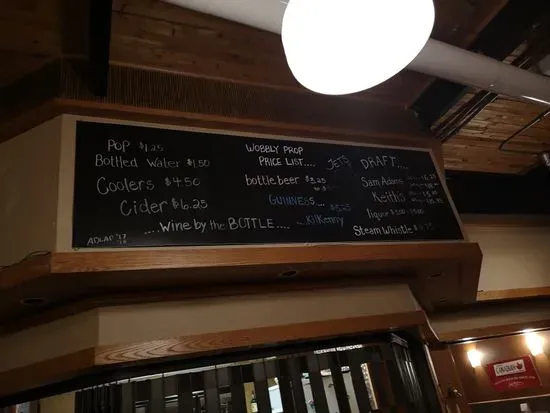 POP $1.25
Bottled Water $1.50
Coolers $4.50
Cider $6.25
....Wine by the BOTTLE....
WOBBLY PROP
PRICE LIST....
bottle beer $3.25
GUINNESS...
Kilkenny
JETS
DRAFT....
Sam Adams
Keith's
liquor
Steam Whistle
Canadian